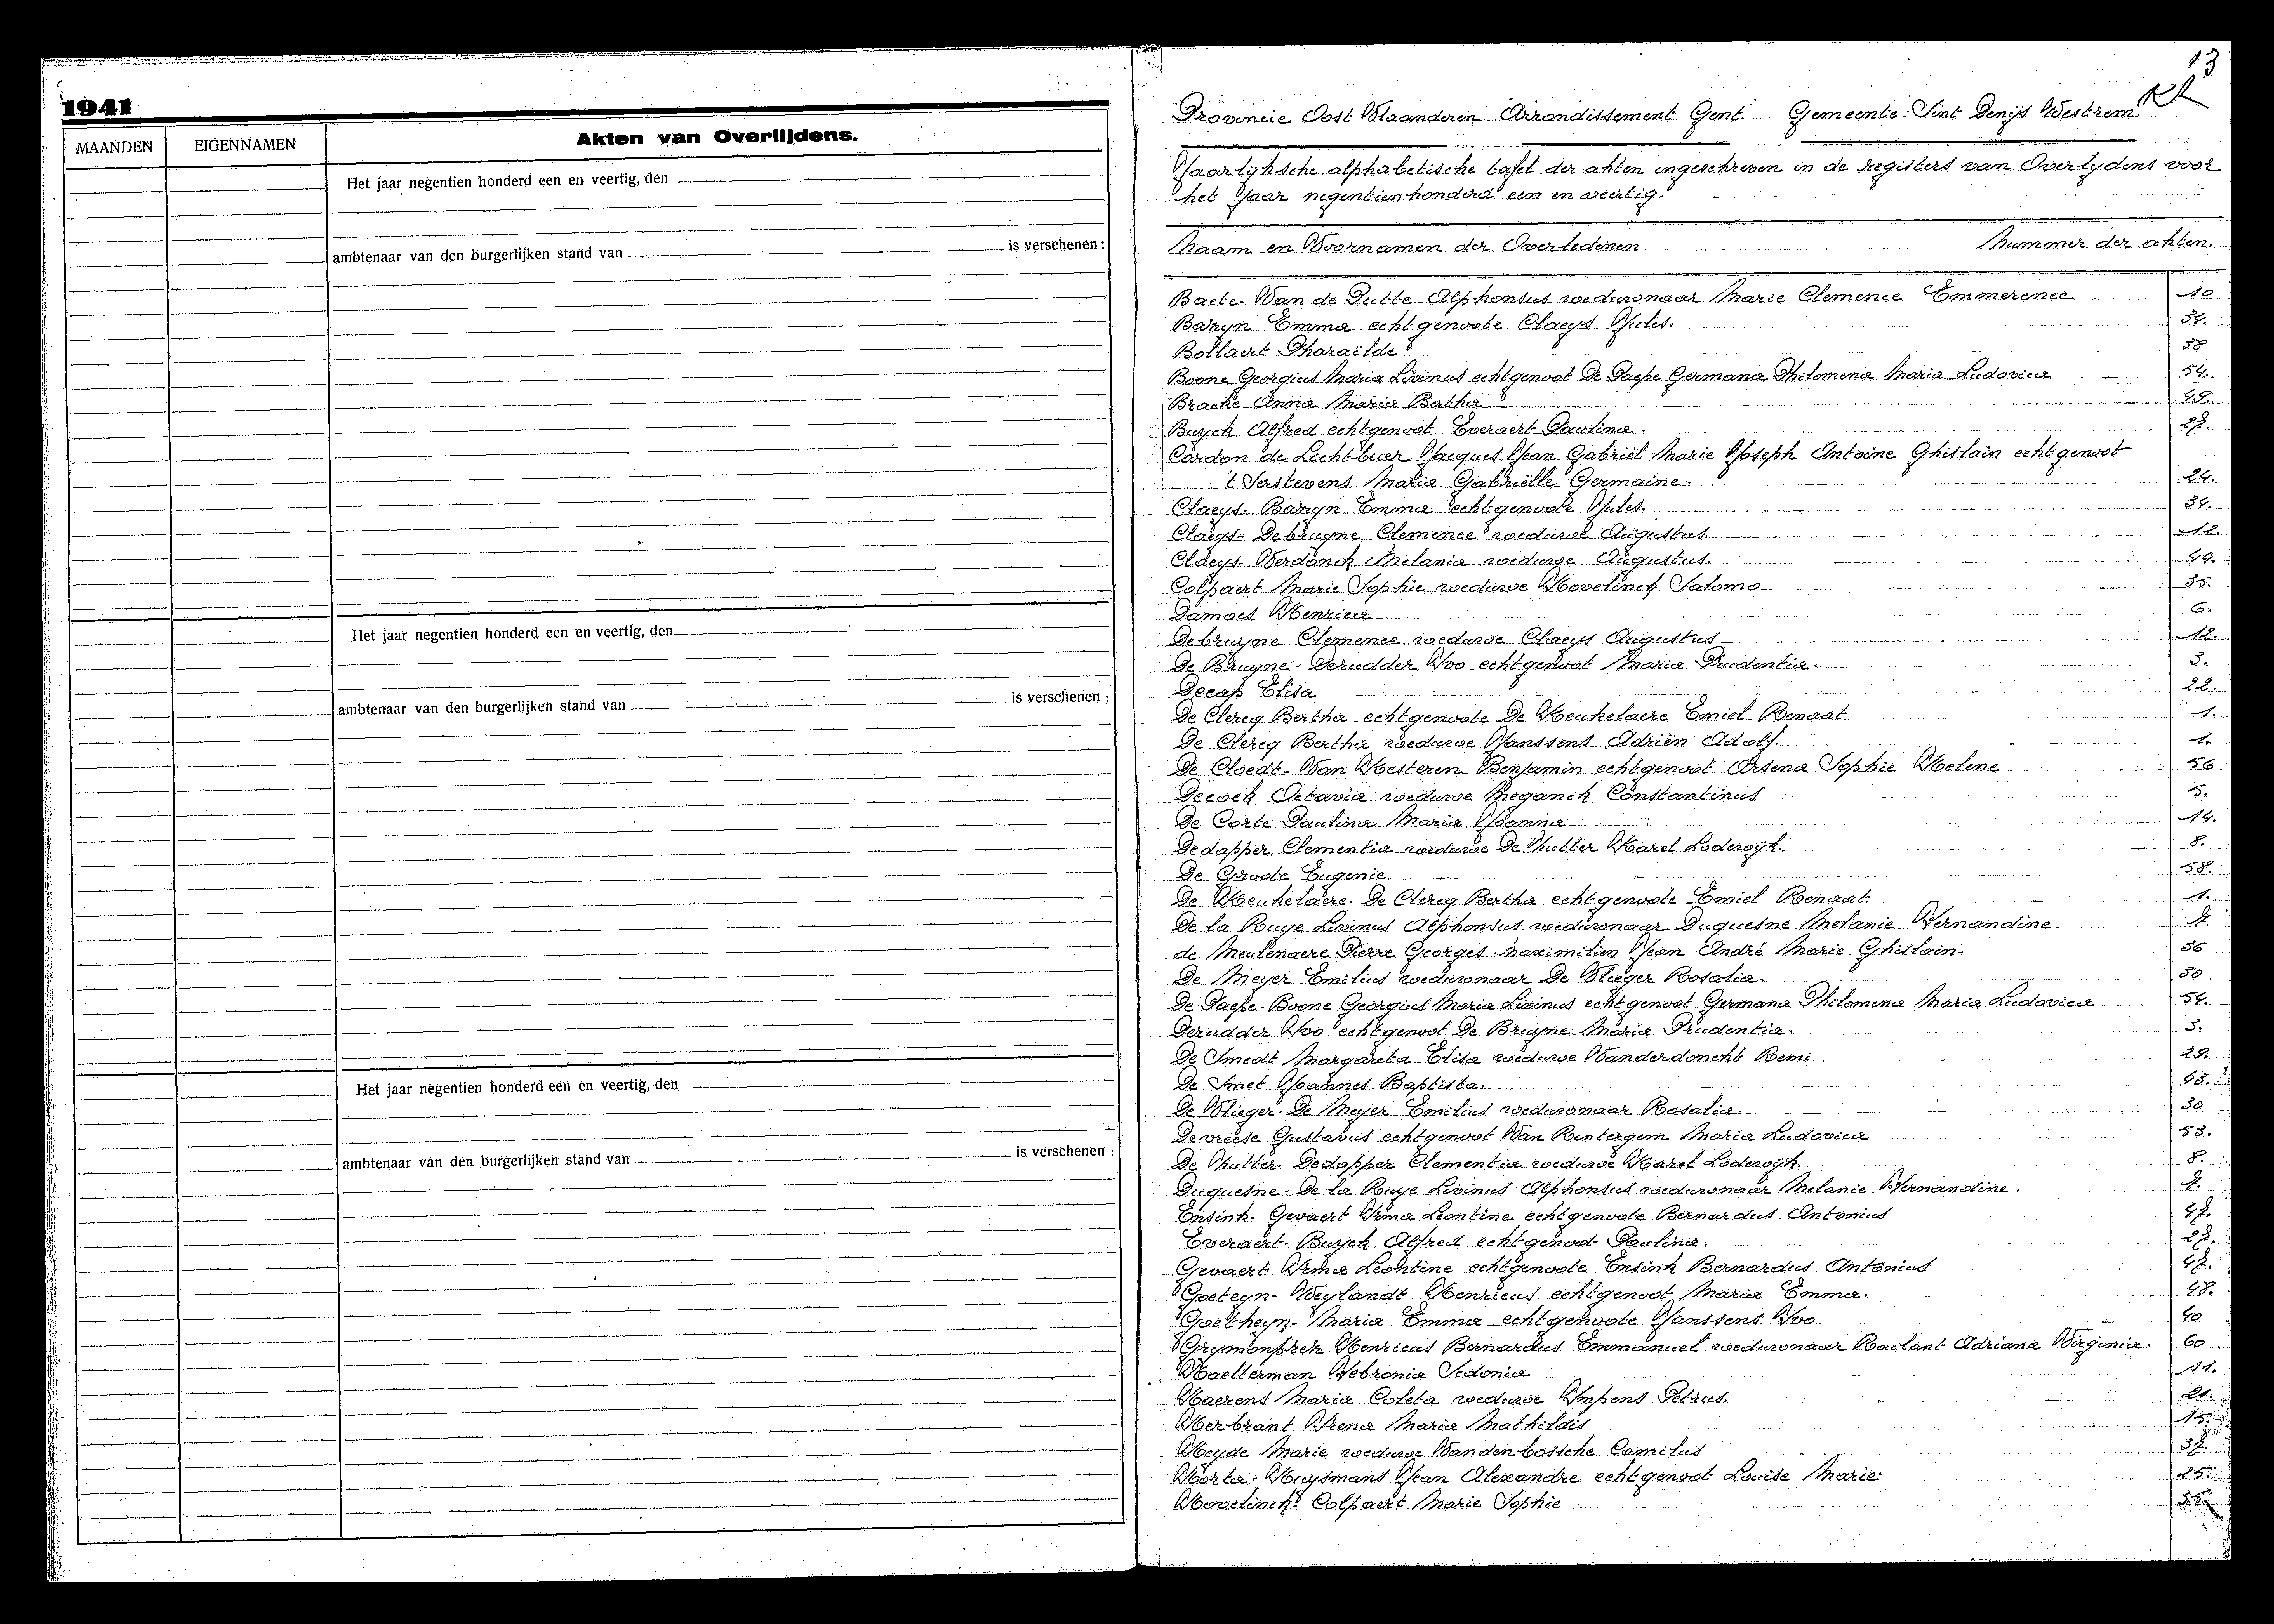 1941
MAANDEN
EIGENNAMEN
Akten van Overlijdens.
Het jaar negentien honderd een en veertig, den
ambtenaar van den burgerlijken stand van
is verschenen :
Het jaar negentien honderd een en veertig, den
ambtenaar van den burgerlijken stand van
is verschenen :
Het jaar negentien honderd een en veertig, den
ambtenaar van den burgerlijken stand van
is verschenen :
13
Provincie Oost Vlaanderen Arrondissement Gent. Gemeente: Sint Denijs Westrem.
Jaarlijksche alphabetische tafel der akten ingeschreven in de registers van Overlydens voor
het Jaar negentien honderd een en veertig.
Naam en Voornamen der Overledenen Nummer der akten.
Baete- Van de Putte Alphonsus weduwnaar Marie Clemence Emmerence 10
Baryn Emma echtgenoote Claeys Jules. 34.
Bollaert Pharaïlde 38
Boone Georgius Maria Livinus echtgenoot De Paepe Germana Philomena Maria Ludovica 54.
Bracke Anna Maria Bertha 49.
Buyck Alfred echtgenoot Everaert Paulina. 27.
Cardon de Lichtbuer Jacques Jean Gabriël Marie Joseph Antoine Ghislain echtgenoot
't Serstevens Maria Gabriëlle Germaine. 24.
Claeys- Baryn Emma echtgenoote Jules. 34.
Claeys- Debruyne Clemence weduwe Augustus 12.
Claeys- Verdonck Melania weduwe Augustus. 44.
Colpaert Marie Sophie weduwe Hovelinck Salomo 35.
Damoes Henrica 6.
Debruyne Clemence weduwe Claeys Augustus 12.
De Bruyne- Derudder Ivo echtgenoot Maria Prudentia. 3.
Decap Elisa 22.
De Clercq Bertha echtgenoote De Keukelaere Emiel Renaat 1.
De Clercq Bertha weduwe Janssens Adriën Adolf. 1.
De Cloedt- Van Hesteren Benjamin echtgenoot Arsena Sophie Helene 56
Decock Octavia weduwe Meganck Constantinus 5.
De Corte Paulina Maria Joanna 14.
Dedapper Clementia weduwe De Vutter Karel Lodewijk. 8.
De Groote Eugenie 58.
De Keukelaere- De Clercq Bertha echtgenoote Emiel Renaat. 1.
De la Ruye Livinus Alphonsus weduwnaar Duquesne Melanie Fernandine. 7.
de Meulenaere Pierre Georges Maximilien Jean André Marie Ghislain. 36
De Meyer Emilius weduwnaar De Vlieger Rosalia. 30
De Paepe- Boone Georgius Maria Livinus echtgenoot Germana Philomena Maria Ludovica 54.
Derudder Ivo echtgenoot De Bruyne Maria Prudentia. 3.
De Smedt Margareta Elisa weduwe Vanderdonckt Remi 29.
De Smet Joannes Baptista. 43.
De Vlieger- De Meyer Emilius weduwnaar Rosalia. 30
Devreese Gustavus echtgenoot Van Rentergem Maria Ludovica 53.
De Vutter- Dedapper Clementia weduwe Karel Lodewijk. 8.
Duquesne- De la Ruye Livinus Alphonsus weduwnaar Melanie Fernandine. 7.
Ensink- Gevaert Irma Leontine echtgenoote Bernardus Antonius 47.
Everaert- Buyck Alfred echtgenoot Paulina. 27.
Gevaert Irma Leontine echtgenoote Ensink Bernardus Antonius 47.
Goeteyn- Weylandt Henricus echtgenoot Maria Emma. 48.
Goetheyn- Maria Emma echtgenoote Janssens Ivo 40
Grymonprez Henricus Bernardus Emmanuel weduwnaar Raclant Adriana Virginia. 60
Haelterman Febronia Sedonia 11.
Haerens Maria Coleta weduwe Impens Petrus. 21.
Herbrant Irena Maria Mathildis 15.
Heyde Marie weduwe Vandenbossche Camilus 37.
Horta- Huysmans Jean Alexandre echtgenoot Louise Marie. 25.
Hovelinck- Colpaert Marie Sophie 35.